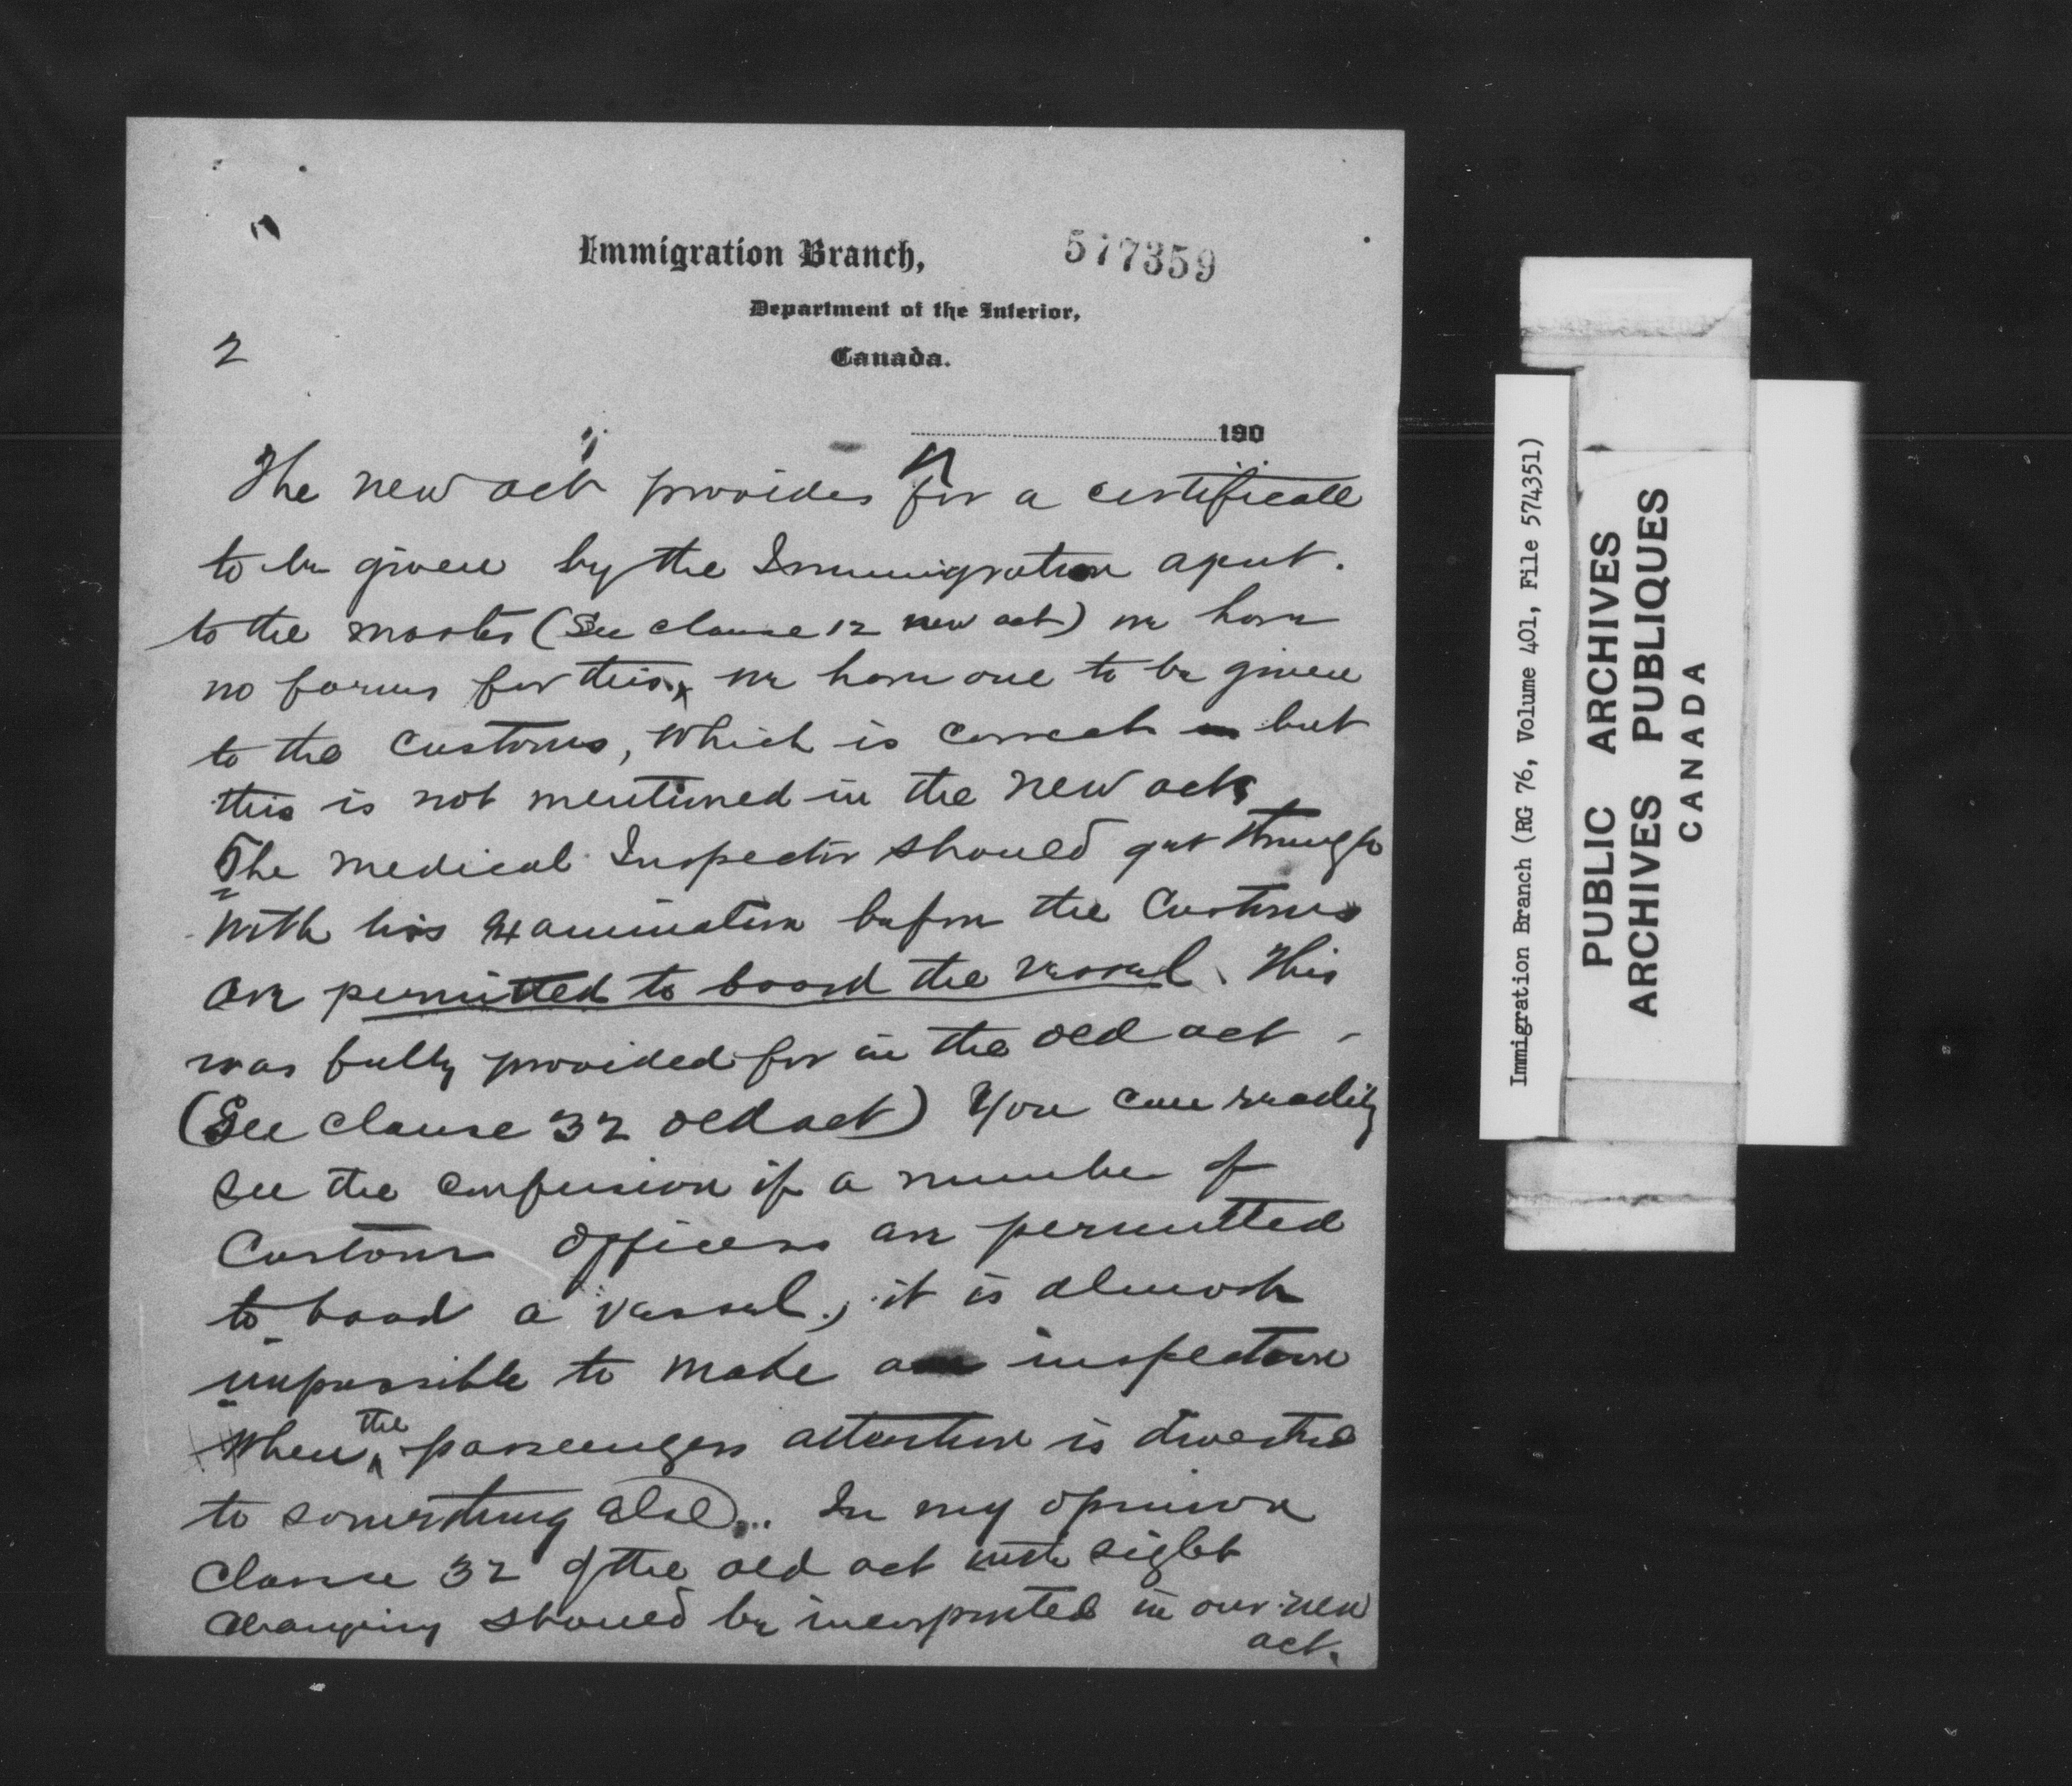 Immigration Branch,
577359
Department of the Interior,
Canada.
2
190
The new act provides for a certificate
to be given by the Immigration agent.
to the master (See clause 12 new act) we have
no forms for this, we have one to be given
to the Customs, which is correct but
this is not mentioned in the new act,
The medical Inspector should get through
with his examination before the Customs
are permitted to board the vessel. This
was fully provided for in the old act -
(See clause 32 old act) You can readily
see the confusion if a number of
Customs officers are permitted
to board a vessel, it is almost
impossible to make an inspection
when the passengers attention is directed
to something else... In my opinion
Clause 32 of the old act with slight
changing should be incorporated in our new
act.
Immigration Branch (RG 76, Volume 401, File 574351)
PUBLIC ARCHIVES
ARCHIVES PUBLIQUES
CANADA